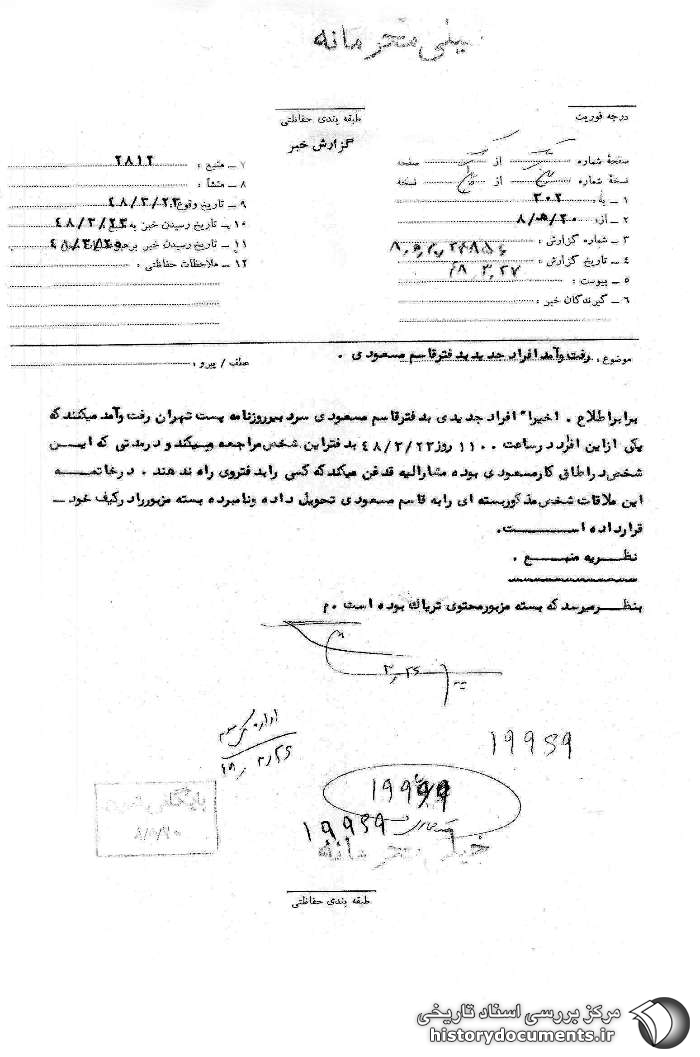 خیلی محرمانه
درجه فوریت
طبقه بندی حفاظتی
گزارش خبر
صفحهٔ شماره یک از یک صفحه
نسخهٔ شماره از نسخه
۱ ـ به : ۳۰۲
۲ ـ از : ۲۰/ه۸
۳ ـ شماره گزارش :
۴ ـ تاریخ گزارش : ۴۸٫۳٫۲۷
۵ ـ پیوست :
۶ ـ گیرندگان خبر :
۷ ـ منبع : ۲۸۱۲
۸ ـ منشأ :
۹ ـ تاریخ وقوع
۱۰ ـ تاریخ رسیدن خبر به
۱۱ ـ تاریخ رسیدن خبر
۱۲ ـ ملاحظات حفاظتی :
موضوع : رفت وآمد افراد جدید بدفترقاسم مسعودی .
عطف / پیرو :
برابراطلاع . اخیرا" افراد جدیدی بدفترقاسم مسعودی سردبیرروزنامه پست تهران رفت وآمد میکنند که
یکی ازاین افراد درساعت ۱۱۰۰ روز ۴۸/۳/۲۳ بدفتراین شخص مراجعه ومیکند ودرمدتی که ایـن
شخص دراطاق کارمسعودی بوده مشارالیه قدغن میکند که کسی رابدفتروی راه ندهند . درخاتمـــه
این ملاقات شخص مذکوربسته ای رابه قاسم مسعودی تحویل داده ونامبرده بسته مزبورراد رکیف خود ـ
قرارداده اســـــت.
نظـریه منبـع .
بنظـرمیرسد که بسته مزبورمحتوی تریاک بوده است . م
۳٫۲۶
اداره کل سوم
۱۹۹۵۹
خیلی محرمانه
بایگانی
۲۰/ه۸
طبقه بندی حفاظتی
مرکز بررسی اسناد تاریخی
historydocuments.ir